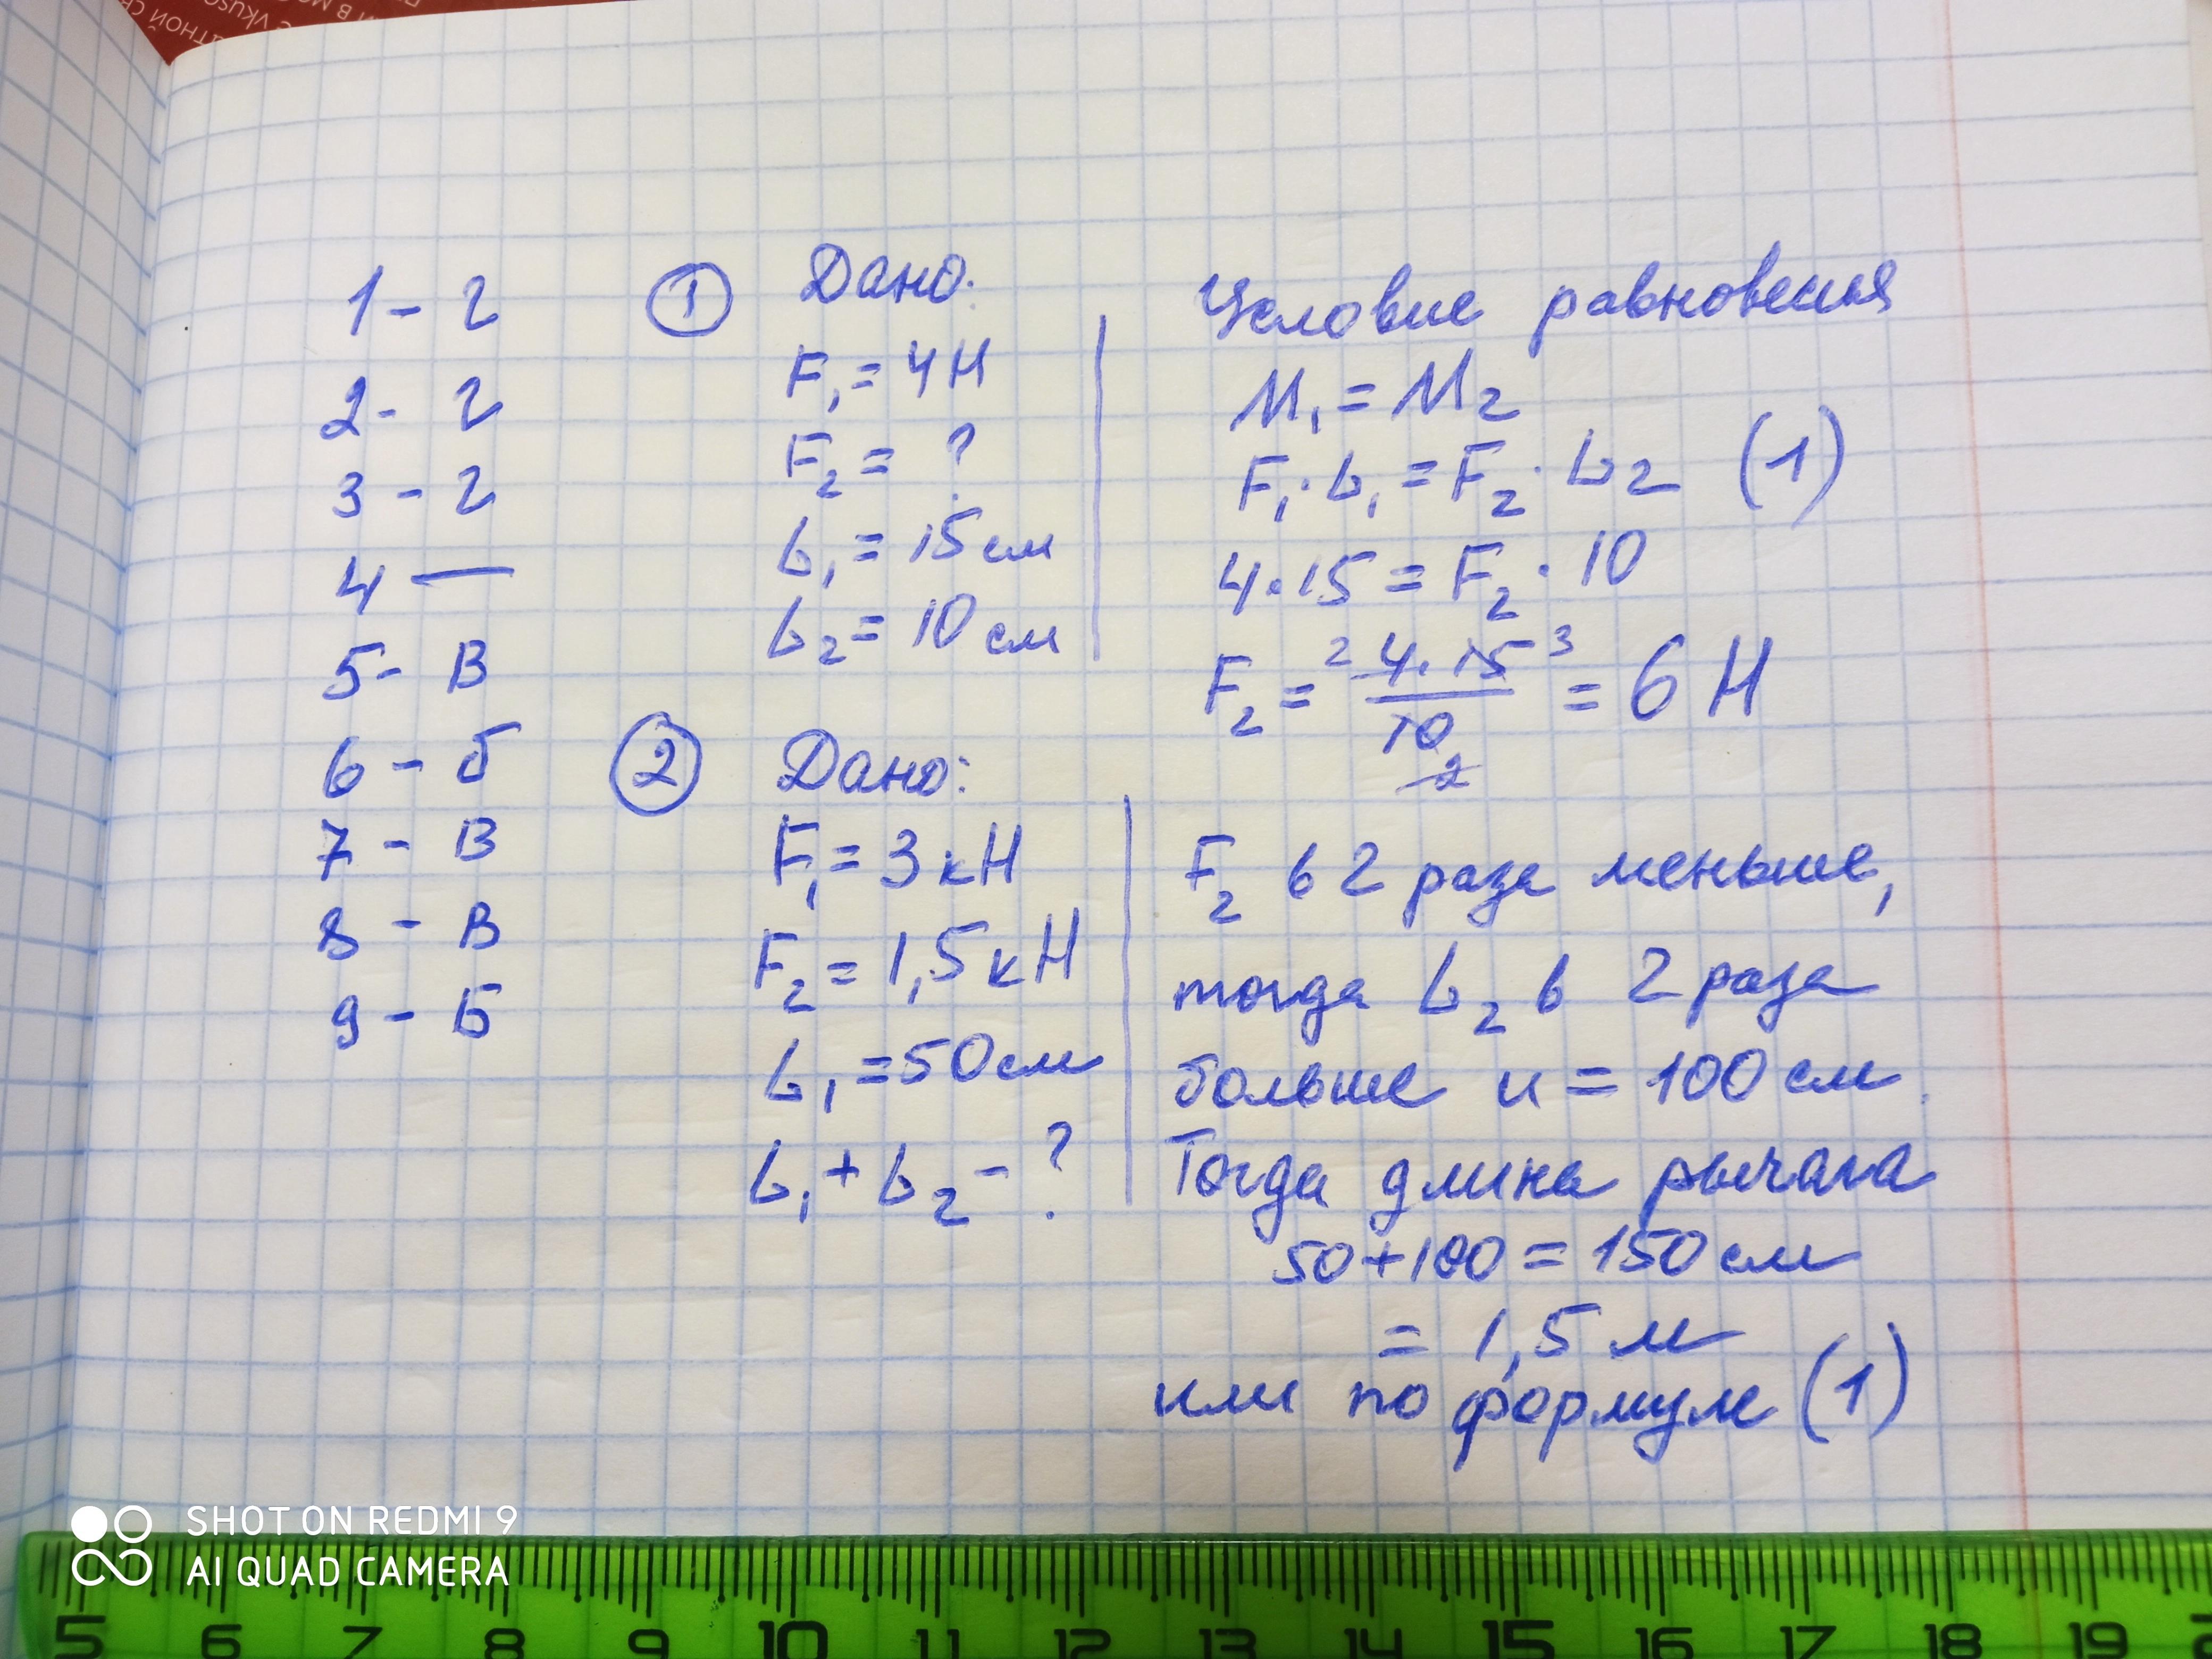 1 - г
2 - г
3 - г
4 —
5 - В
6 - б
7 - В
8 - В
9 - Б
① Дано:
F₁ = 4 Н
F₂ = ?
L₁ = 15 см
L₂ = 10 см
Условие равновесия
M₁ = M₂
F₁ · L₁ = F₂ · L₂ (1)
4 · 15 = F₂ · 10
F₂ = ² 4 · 15 ³ / 10 2 = 6 Н
② Дано:
F₁ = 3 кН
F₂ = 1,5 кН
L₁ = 50 см
L₁ + L₂ - ?
F₂ в 2 раза меньше,
тогда L₂ в 2 раза
больше и = 100 см.
Тогда длина рычага
50 + 100 = 150 см
= 1,5 м
или по формуле (1)
SHOT ON REDMI 9
AI QUAD CAMERA
5 6 7 8 9 10 11 12 13 14 15 16 17 18 19